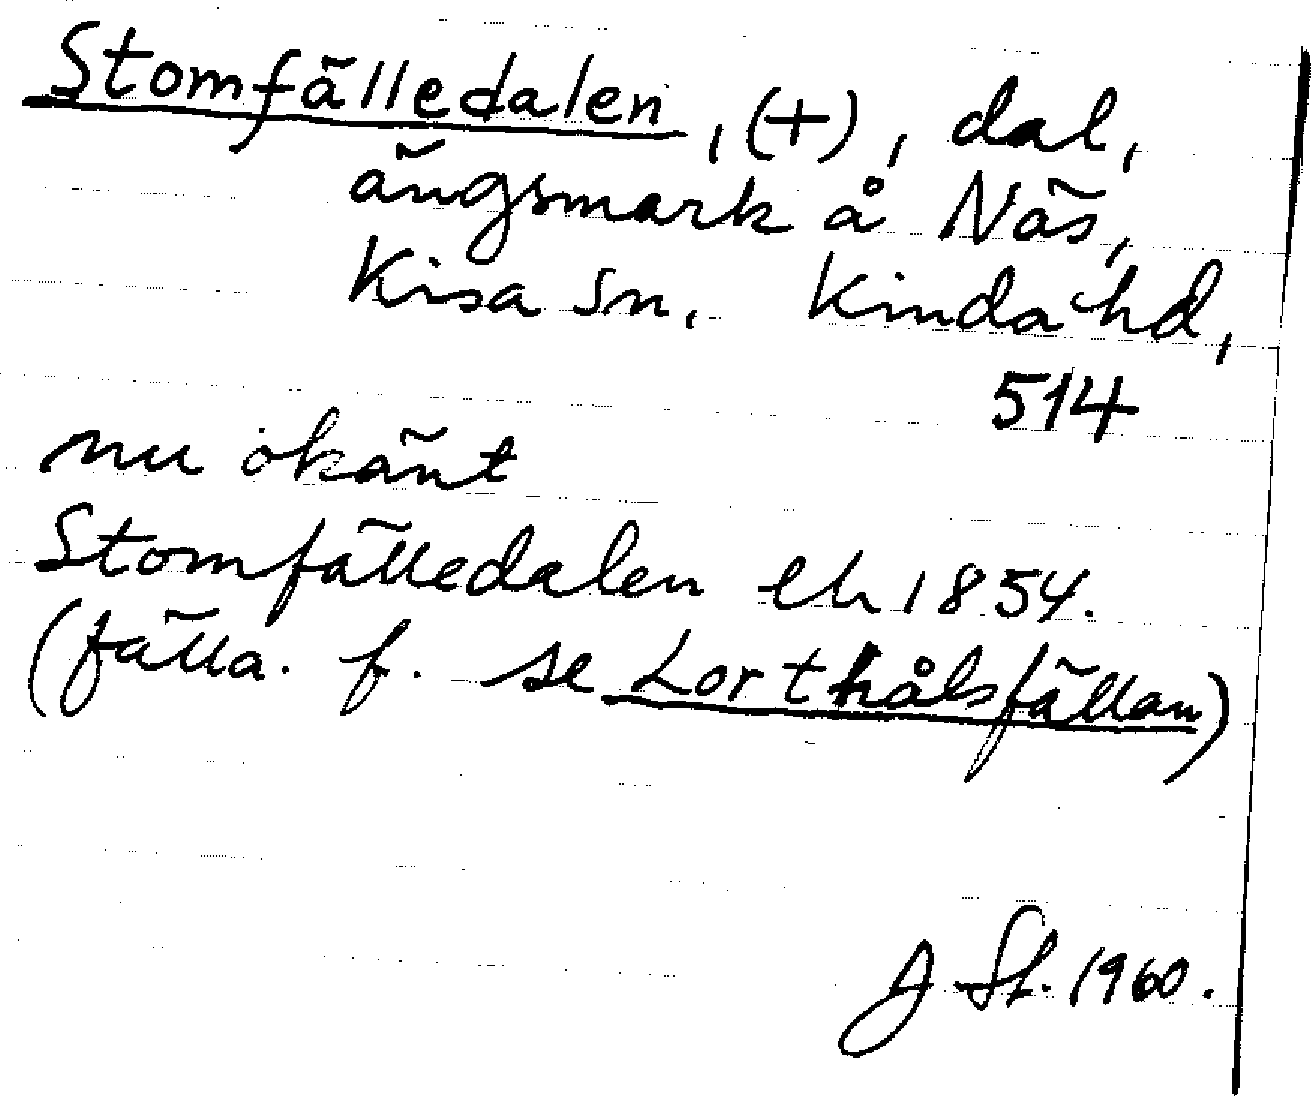 Stomfälledalen, (+), dal,
ängsmark å Näs,
Kisa sn. Kinda hd,
514
nu okänt
Stomfälledalen eh 1854.
(fälla. f. se Lorthålsfällan)
J St. 1960.